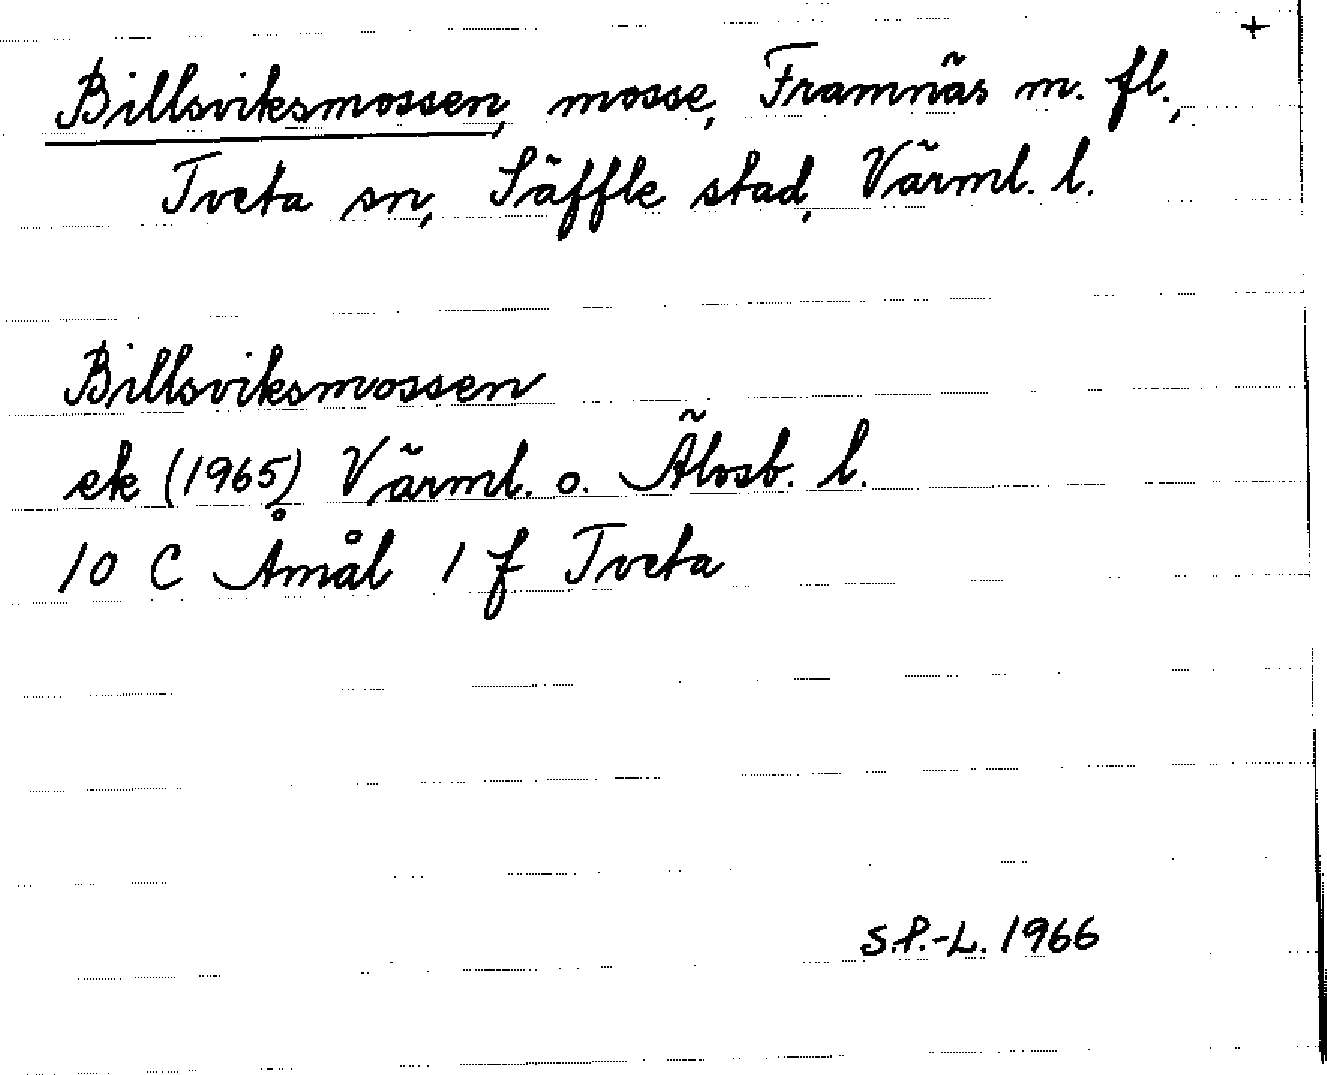 +
Billsviksmossen, mosse, Framnäs m. fl.,
Tveta sn, Säffle stad, Värml. l.
Billsviksmossen
ek (1965) Värml. o. Älvsb. l.
10 C Åmål 1 f Tveta
S.P.-L. 1966